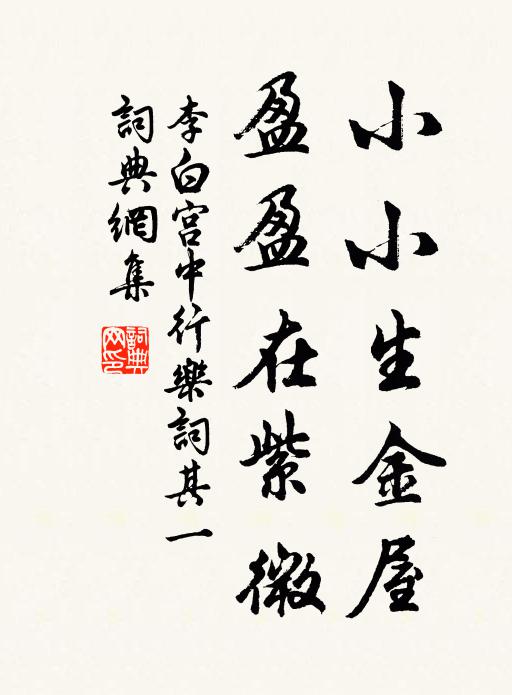 小小生金屋
盈盈在紫微
李白宮中行樂詞其一
詞典網集
詞典網印